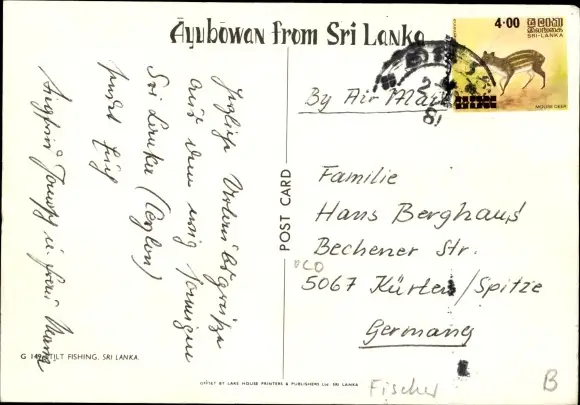 Āyubōwan from Sri Lanka
4.00
ශ්‍රී ලංකා
இலங்கை
SRI-LANKA
MOUSE DEER
81
By Air Mail
Herzliche Urlaubsgrüße
aus dem ewig sonnigen
Sri Lanka (Ceylon)
sendet Euch
Siegfried
POST CARD
Familie
Hans Berghaus
Bechener Str.
5067 Kürten/Spitze
Germany
TILT FISHING. SRI LANKA.
OFFSET BY LAKE HOUSE PRINTERS & PUBLISHERS Ltd. SRI LANKA
Fischer
B